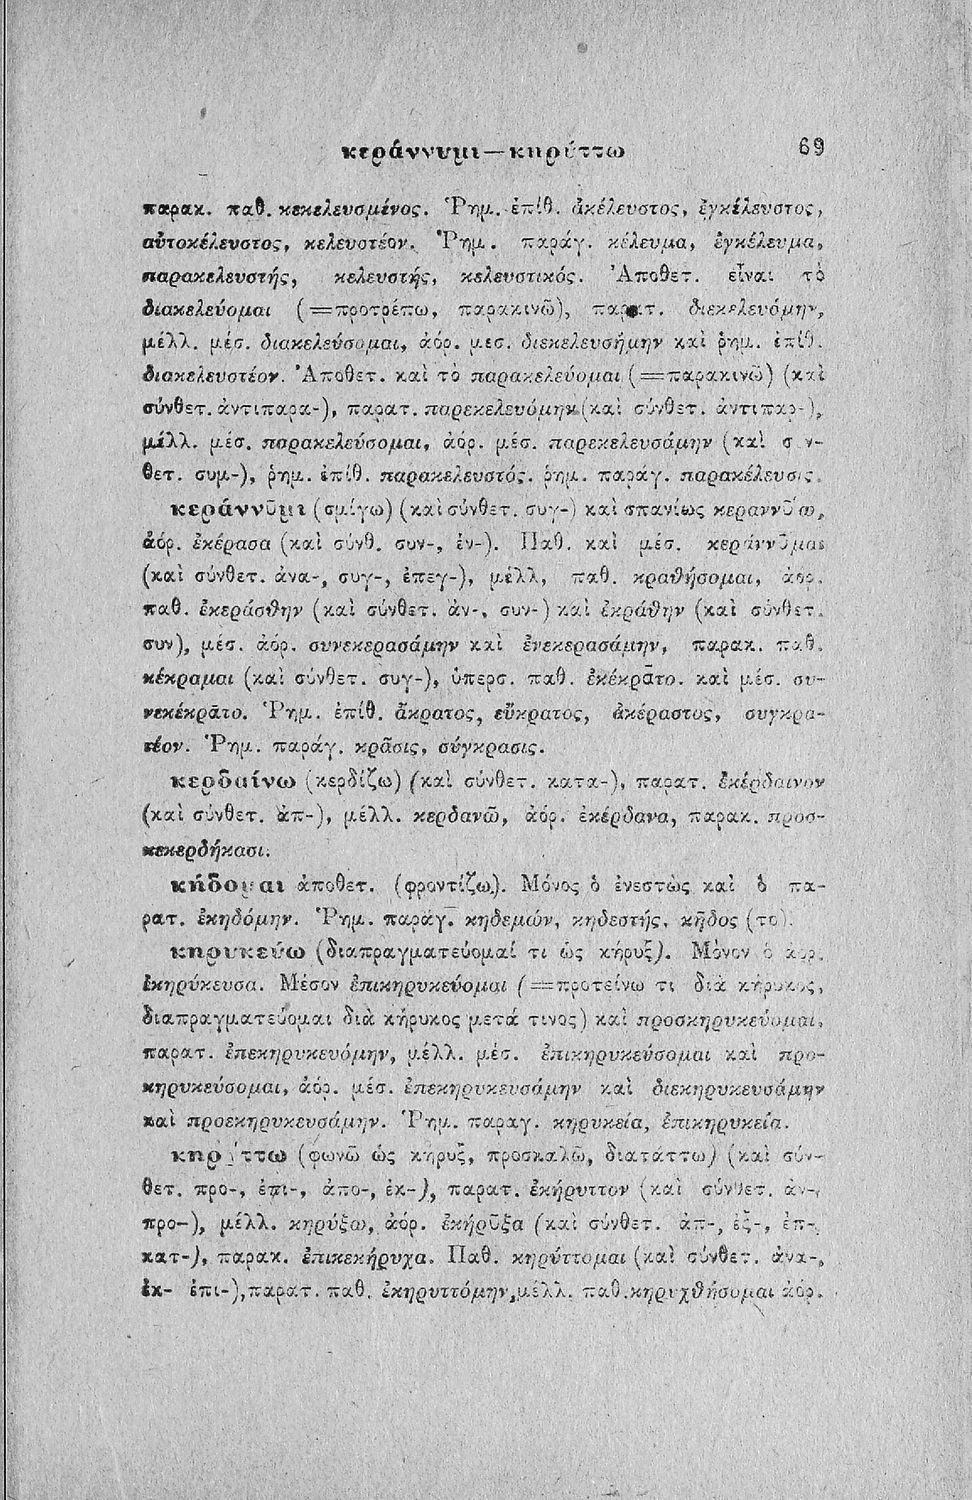 κεράννυμι—κηρύττω 69
παρακ. παθ. κεκελευσμένος. Ῥημ. ἐπίθ. ἀκέλευστος, ἐγκέλευστος,
αὐτοκέλευστος, κελευστέον. Ῥημ. παράγ. κέλευμα, ἐγκέλευμα,
παρακελευστής, κελευστής, κελευστικός. Ἀποθετ. εἶναι τὸ
διακελεύομαι (=προτρέπω, παρακινῶ), παρατ. διεκελευόμην,
μέλλ. μέσ. διακελεύσομαι, ἀόρ. μεσ. διεκελευσήμην καὶ ῥημ. ἐπίθ.
διακελευστέον. Ἀποθετ. καὶ τὸ παρακελεύομαι (=παρακινῶ) (καὶ
σύνθετ. ἀντιπαρα-), παρατ. παρεκελευόμην (καὶ σύνθετ. ἀντιπαρ-),
μέλλ. μέσ. παρακελεύσομαι, ἀόρ. μέσ. παρεκελευσάμην (καὶ σύν-
θετ. συμ-), ῥημ. ἐπίθ. παρακελευστός. ῥημ. παράγ. παρακέλευσις.
κεράννῡμι (σμίγω) (καὶ σύνθετ. συγ-) καὶ σπανίως κεραννύω,
ἀόρ. ἐκέρασα (καὶ σύνθ. συν-, ἐν-). Παθ. καὶ μέσ. κεράννῡμαι
(καὶ σύνθετ. ἀνα-, συγ-, ἐπεγ-), μέλλ, παθ. κραθήσομαι, ἀόρ.
παθ. ἐκεράσθην (καὶ σύνθετ. ἀν-, συν-) καὶ ἐκράθην (καὶ σύνθετ.
συν), μέσ. ἀόρ. συνεκερασάμην καὶ ἐνεκερασάμην, παρακ. παθ.
κέκραμαι (καὶ σύνθετ. συγ-), ὑπερσ. παθ. ἐκέκρᾱτο. καὶ μέσ. συ-
νεκέκρᾱτο. Ῥημ. ἐπίθ. ἄκρατος, εὔκρατος, ἀκέραστος, συγκρα-
τέον. Ῥημ. παράγ. κρᾶσις, σύγκρασις.
κερδαίνω (κερδίζω) (καὶ σύνθετ. κατα-), παρατ. ἐκέρδαινον
(καὶ σύνθετ. ἀπ-), μέλλ. κερδανῶ, ἀόρ. ἐκέρδανα, παρακ. προσ-
κεκερδήκασι.
κήδομαι ἀποθετ. (φροντίζω). Μόνος ὁ ἐνεστὼς καὶ ὁ πα-
ρατ. ἐκηδόμην. Ῥημ. παράγ. κηδεμών, κηδεστής, κῆδος (το).
κηρυκεύω (διαπραγματεύομαί τι ὡς κήρυξ). Μόνον ὁ ἀόρ.
ἐκηρύκευσα. Μέσον ἐπικηρυκεύομαι (=προτείνω τι διὰ κήρυκος,
διαπραγματεύομαι διὰ κήρυκος μετά τινος) καὶ προσκηρυκεύομαι,
παρατ. ἐπεκηρυκευόμην, μέλλ. μέσ. ἐπικηρυκεύσομαι καὶ προ-
κηρυκεύσομαι, ἀόρ. μέσ. ἐπεκηρυκευσάμην καὶ διεκηρυκευσάμην
καὶ προεκηρυκευσάμην. Ῥημ. παραγ. κηρυκεία, ἐπικηρυκεία.
κηρύττω (φωνῶ ὡς κήρυξ, προσκαλῶ, διατάττω) (καὶ σύν-
θετ. προ-, ἐπι-, ἀπο-, ἐκ-), παρατ. ἐκήρυττον (καὶ σύνθετ. ἀν-,
προ-), μέλλ. κηρύξω, ἀόρ. ἐκήρῡξα (καὶ σύνθετ. ἀπ-, ἐξ-, ἐπ-,
κατ-), παρακ. ἐπικεκήρυχα. Παθ. κηρύττομαι (καὶ σύνθετ. ἀνα-,
ἐκ- ἐπι-), παρατ. παθ. ἐκηρυττόμην, μέλλ. παθ. κηρυχθήσομαι ἀόρ.